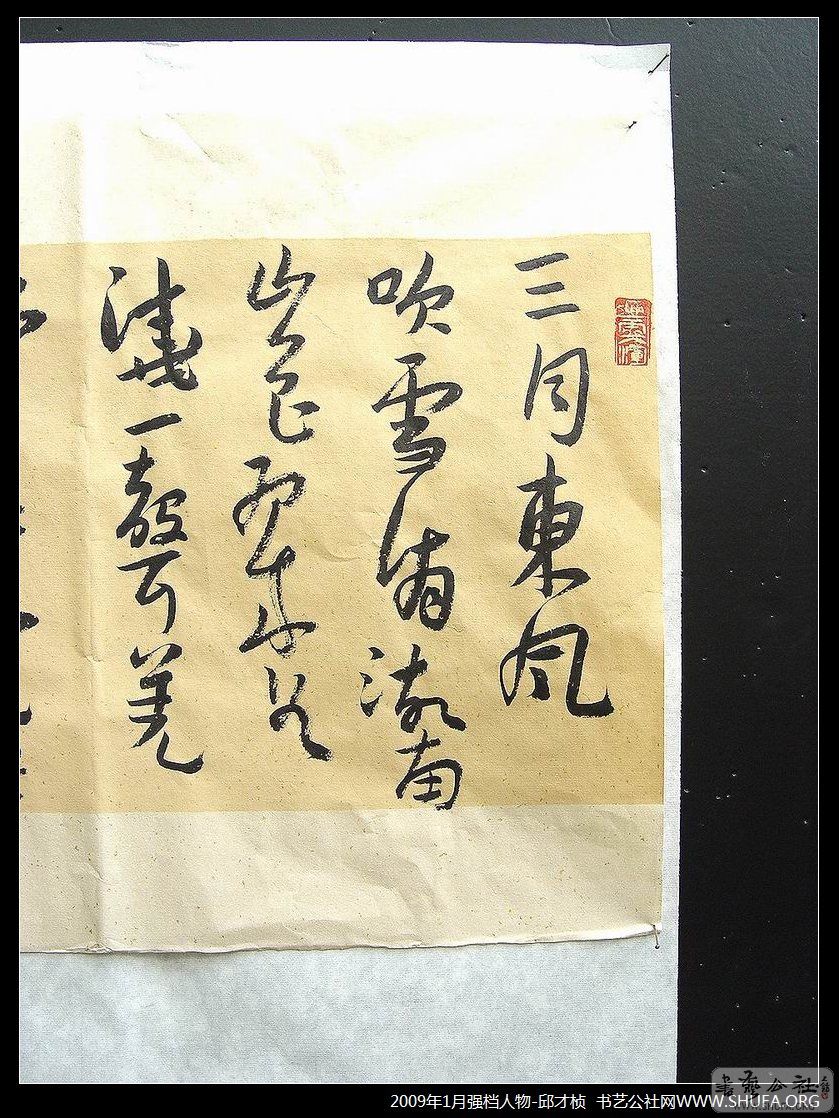 三月東風
吹雪消湖南
山色翠如
澆一聲羌
2009年1月强档人物-邱才桢 书艺公社网WWW.SHUFA.ORG
書藝公社